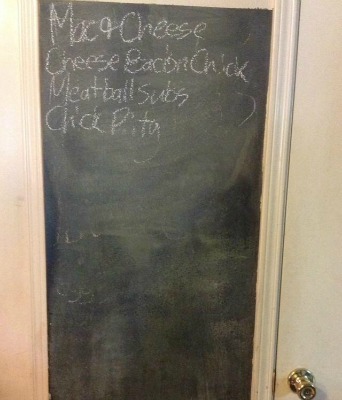 Mac & Cheese
Cheese Bacon Chick
Meatball Subs
Chick Pita